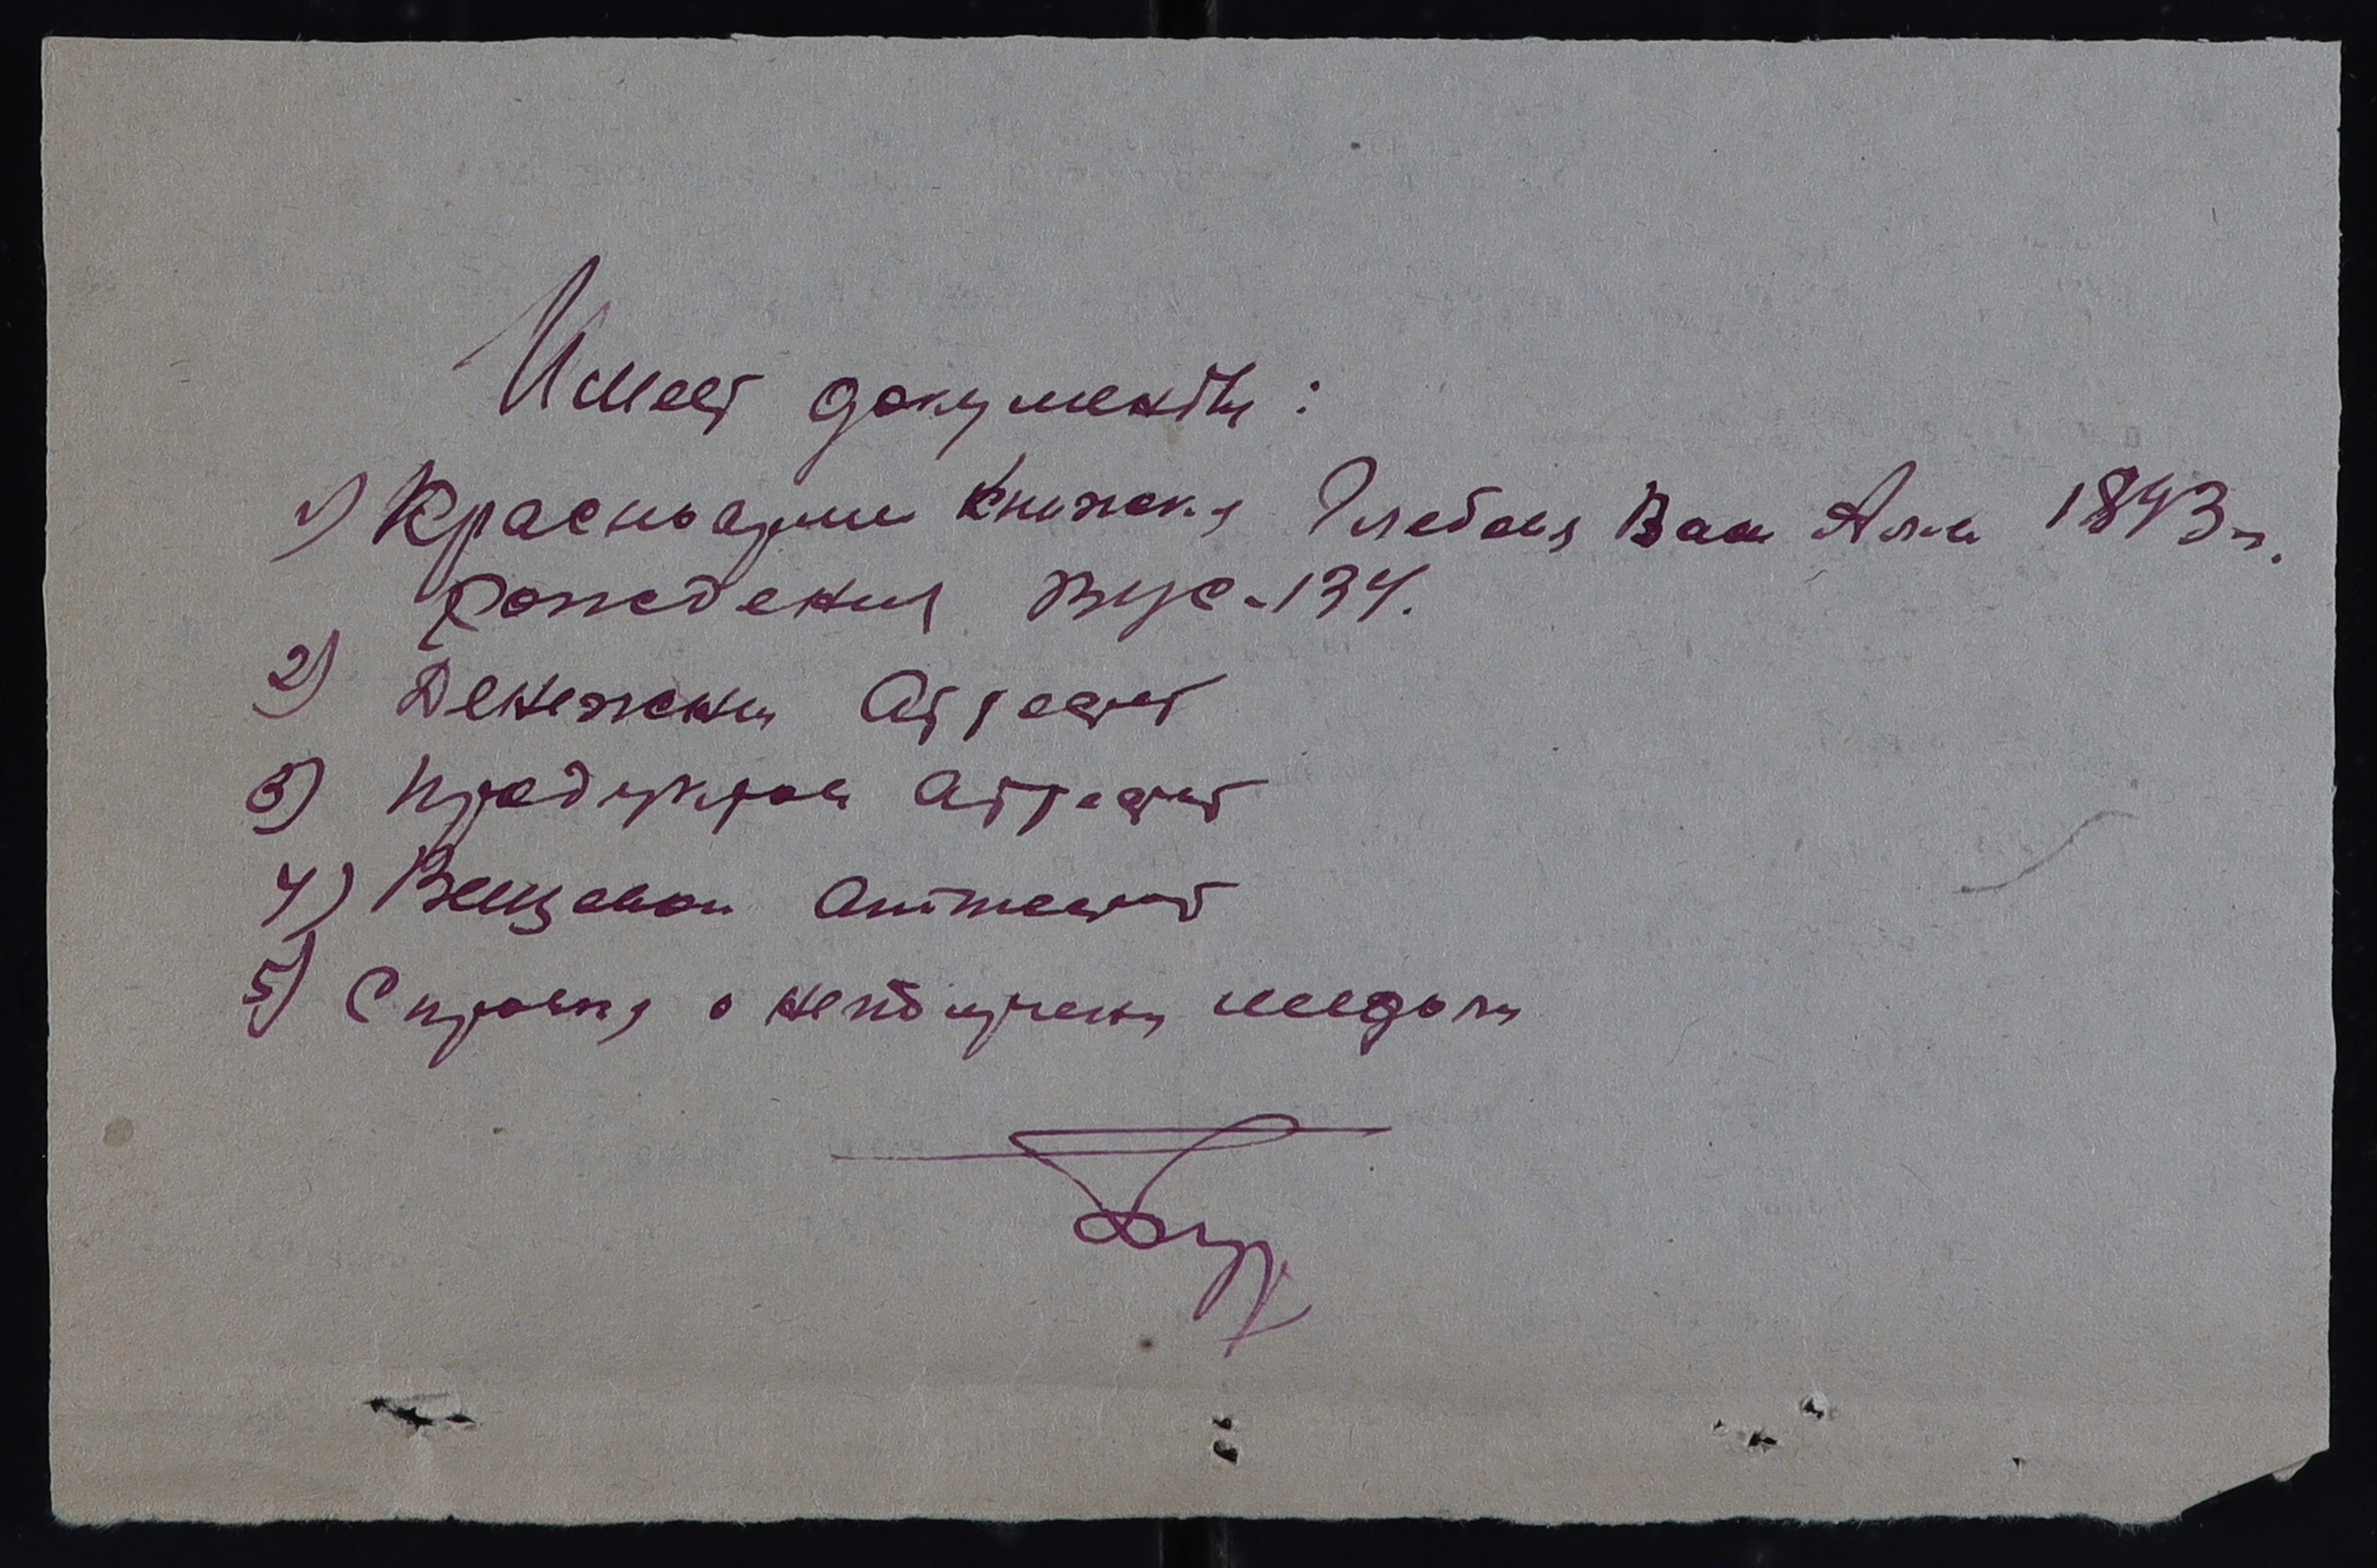 Имеет документы:
1) Красноарми книжка Глебова Вас Алек 1893 г.
рождения ВУС-134.
2) Денежны Аттестат
3) Продуктов Аттестат
4) Вещевой Аттестат
5) Справка о медали